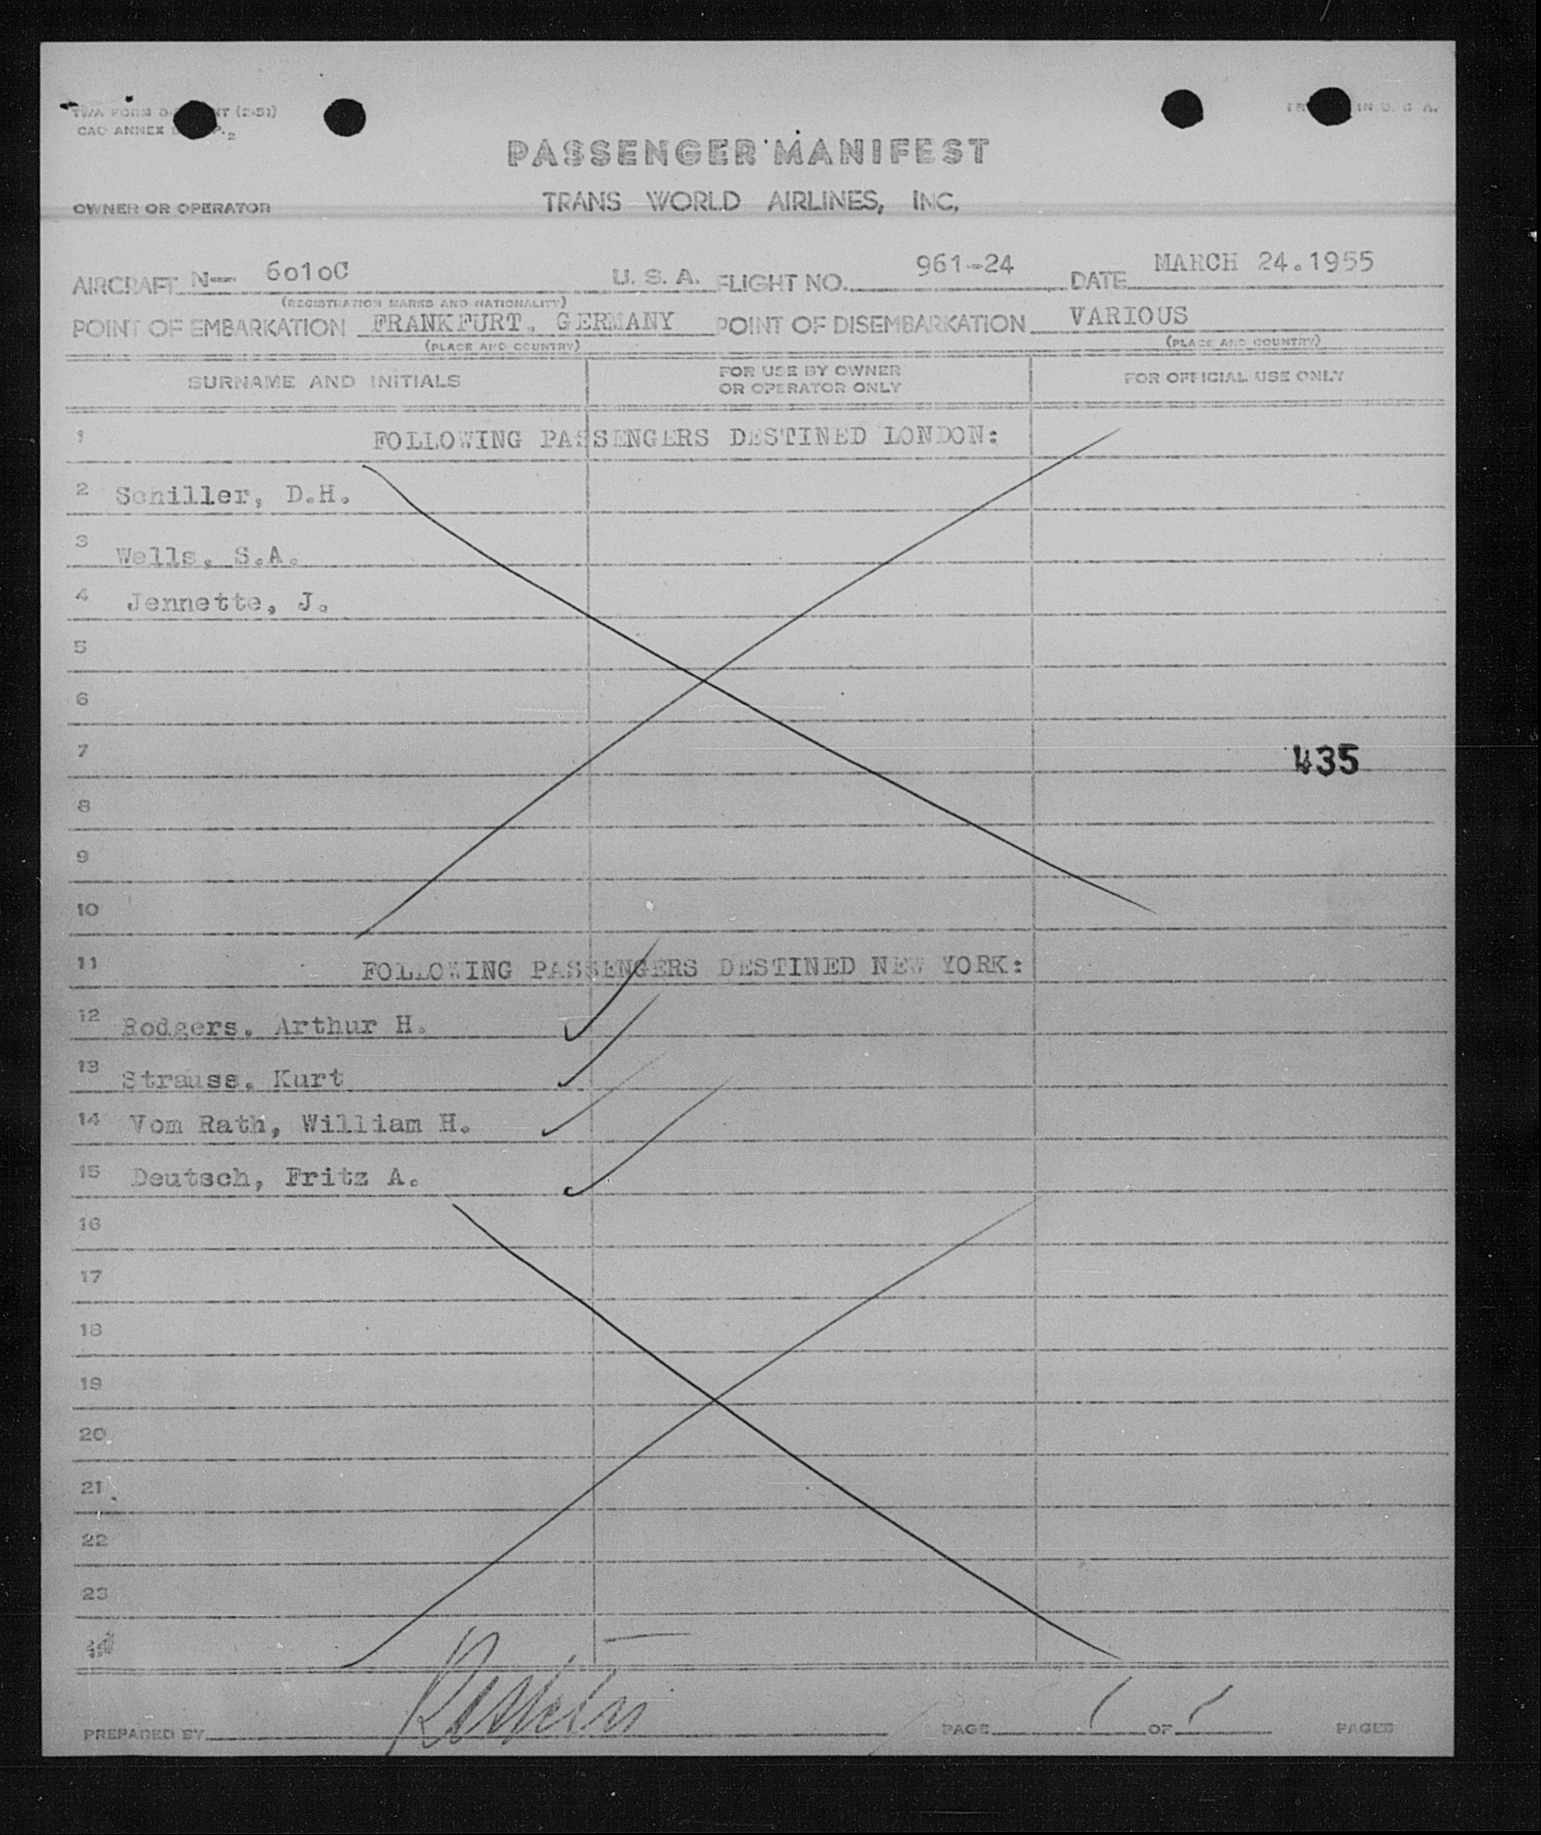 TWA FORM
CAO ANNEX
IN U. S. A.
PASSENGER MANIFEST
OWNER OR OPERATOR
TRANS WORLD AIRLINES, INC.
AIRCRAFT N-- 6o1oC U. S. A. FLIGHT NO. 961-24 DATE MARCH 24.1955
(REGISTRATION MARKS AND NATIONALITY)
POINT OF EMBARKATION FRANKFURT. GERMANY POINT OF DISEMBARKATION VARIOUS
(PLACE AND COUNTRY) (PLACE AND COUNTRY)
SURNAME AND INITIALS
FOR USE BY OWNER
OR OPERATOR ONLY
FOR OFFICIAL USE ONLY
1 FOLLOWING PASSENGERS DESTINED LONDON:
2 Schiller, D.H.
3 Wells, S.A.
4 Jennette, J.
5
6
7 435
8
9
10
11 FOLLOWING PASSENGERS DESTINED NEW YORK:
12 Rodgers. Arthur H.
13 Strauss. Kurt
14 Vom Rath, William H.
15 Deutsch, Fritz A.
16
17
18
19
20
21
22
23
24
PREPARED BY
PAGE 1 OF 1 PAGES